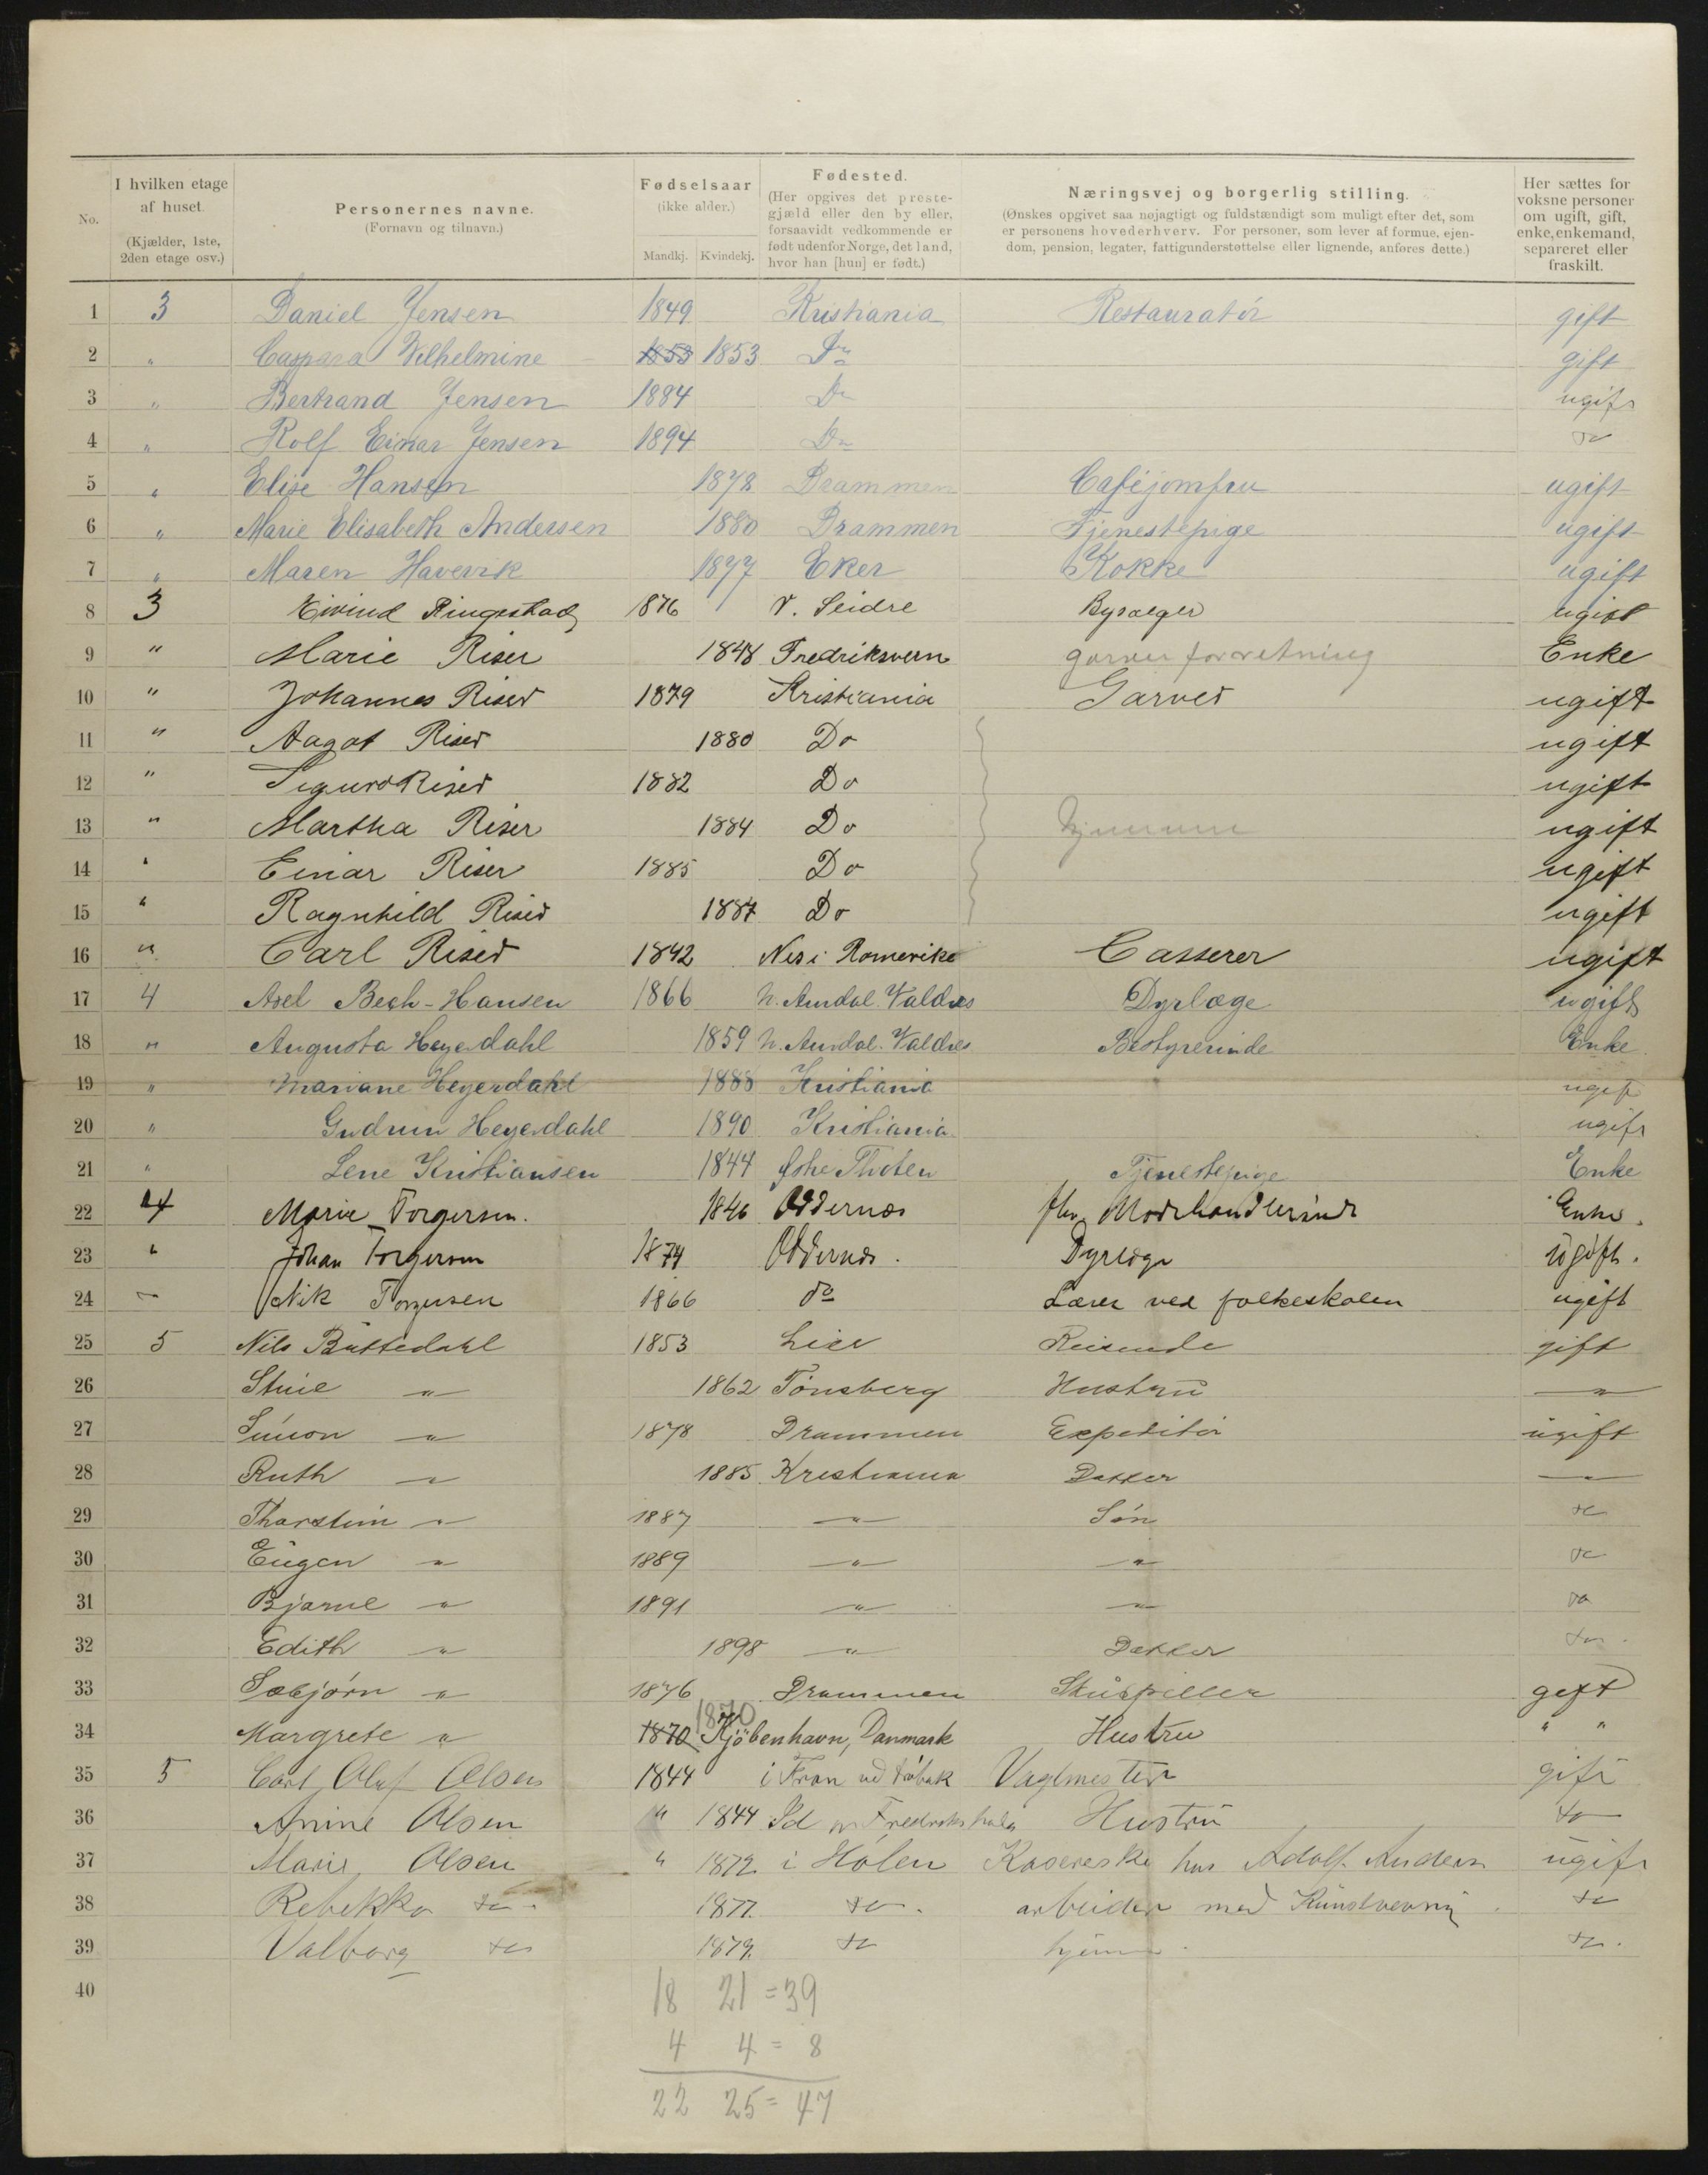 No.
I hvilken etage af huset. (Kjælder, 1ste, 2den etage osv.)
Personernes navne. (Fornavn og tilnavn.)
Fødselsaar (ikke alder.)
Mandkj. Kvindekj.
Fødested. (Her opgives det prestegjæld eller den by eller, forsaavidt vedkommende er født udenfor Norge, det land, hvor han [hun] er født.)
Næringsvej og borgerlig stilling. (Ønskes opgivet saa nøjagtigt og fuldstændigt som muligt efter det, som er personens hovederhverv. For personer, som lever af formue, ejendom, pension, legater, fattigunderstøttelse eller lignende, anføres dette.)
Her sættes for voksne personer om ugift, gift, enke, enkemand, separeret eller fraskilt.
1 3 Daniel Jensen 1849 Kristiania Restauratór gift
2 " Caspara Wilhelmine 1853 1853 Do gift
3 " Bertrand Jensen 1884 Do ugift
4 " Rolf Einar Jensen 1894 Do do
5 " Elise Hansen 1872 Drammen Caféjomfru ugift
6 " Marie Elisabeth Andersen 1880 Drammen Tjenestepige ugift
7 " Maren Havervik 1877 Eker Kokke ugift
8 3 Eivind Ringestad 1876 V. Slidre ugift
9 " Marie Riser 1848 Fredriksvern garver forretning Enke
10 " Johannes Riser 1879 Kristiania Garver ugift
11 " Aagot Riser 1880 Do ugift
12 " Sigurd Riser 1882 Do ugift
13 " Martha Riser 1884 Do hjemme ugift
14 " Einar Riser 1885 Do ugift
15 " Ragnhild Riser 1887 Do ugift
16 " Carl Riser 1842 Nes i Romerike Casserer ugift
17 4 Axel Bech-Hansen 1866 N. Aurdal. Valdres Dyrlæge ugift
18 " Augusta Heyerdahl 1859 N. Aurdal. Valdres Bestyrerinde Enke
19 " Mariane Heyerdahl 1888 Kristiania ugift
20 " Gudrun Heyerdahl 1890 Kristiania ugift
21 " Lene Kristiansen 1844 Østre Thoten Tjenestepige Enke
22 4 Marie Torgersen. 1846 Oddernæs fhv. Modehandlerinde Enke.
23 " Johan Torgersen 1874 Oddernæs. Dyrlæge ugift.
24 " Nik Torgersen 1866 do Lærer ved folkeskolen ugift
25 5 Nils Buttedahl 1853 Lier Reisende gift
26 Stine " 1862 Tönsberg Hustru "
27 Simon " 1878 Drammen Expeditör ugift
28 Ruth " 1885 Kristiania Datter "
29 Thorstein " 1887 " Sön do
30 Eugen " 1889 " " do
31 Bjarne " 1891 " " do
32 Edith " 1898 " Datter do
33 Sæbjörn " 1876 Drammen Skuespiller gift
34 Margrete " 1870 1870 Kjöbenhavn, Danmark Hustru " "
35 5 Carl Oluf Olsen 1844 Vagtmester gift
36 Anine Olsen " 1844 Id pr Fredrikshald Hustru do
37 Marie Olsen " 1872 i Hölen Kasererske hos Adolf Andersn ugift
38 Rebekka do 1877. do. arbeider med Kunstvevning do
39 Valborg do 1879. do hjemme. do.
40
18 21 = 39
4 4 = 8
22 25 = 47